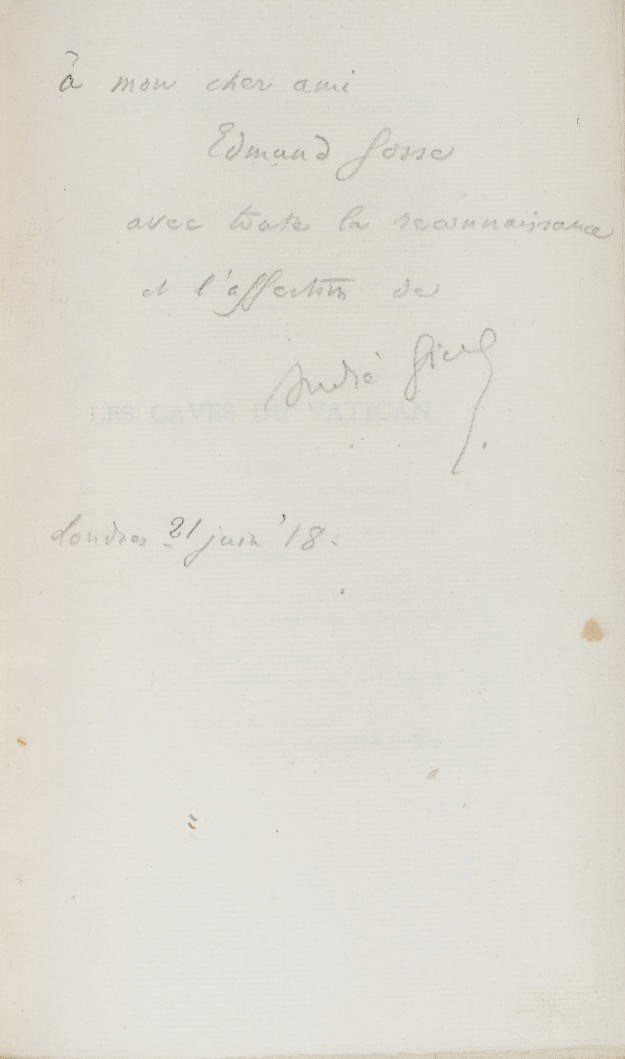 à mon cher ami
Edmund Gosse
avec toute la reconnaissance
et l'affection de
André Gide
LES CAVES DU VATICAN
Londres 21 juin '18.